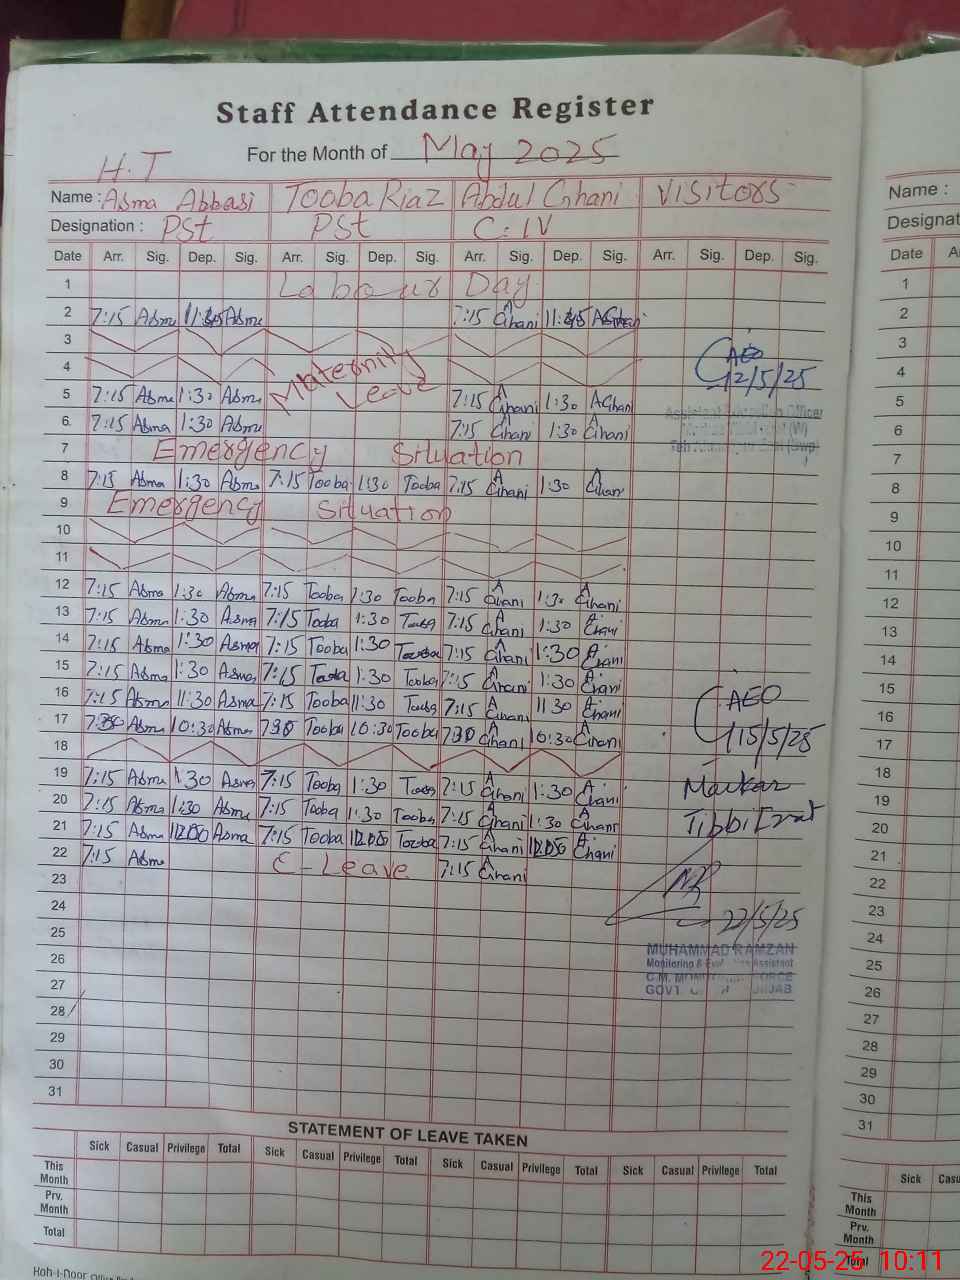 Staff Attendance Register
For the Month of May 2025
H.T
Name : Asma Abbasi Tooba Riaz Abdul Ghani Visitors
Designation : PSt PSt C-IV
Date Arr. Sig. Dep. Sig. Arr. Sig. Dep. Sig. Arr. Sig. Dep. Sig. Arr. Sig. Dep. Sig.
1 Labour Day
2 7:15 Asma Asma 7:15 A Ghani
3
4 Maternity Leave
5 7:15 Asma 1:30 Asma 7:15 A Ghani 1:30 AGhani
6 7:15 Asma 1:30 Asma 7:15 A Ghani 1:30 Ghani
7 Emergency Situation
8 7:15 Asma 1:30 Asma 7:15 Tooba 1:30 Tooba 7:15 A Ghani 1:30 A Ghani
9 Emergency Situation
10
11
12 7:15 Asma 1:30 Asma 7:15 Tooba 1:30 Tooba 7:15 A Ghani 1:30 A Ghani
13 7:15 Asma 1:30 Asma 7:15 Tooba 1:30 Tooba 7:15 A Ghani 1:30 A Ghani
14 7:15 Asma 1:30 Asma 7:15 Tooba 1:30 Tooba 7:15 A Ghani 1:30 A Ghani
15 7:15 Asma 1:30 Asma 7:15 Tooba 1:30 Tooba 7:15 A Ghani 1:30 A Ghani
16 7:15 Asma 11:30 Asma 7:15 Tooba 11:30 Tooba 7:15 A Ghani 11:30 A Ghani
17 Asma 10:30 Asma Tooba 10:30 Tooba A Ghani 10:30 Ghani
18
19 7:15 Asma 1:30 Asma 7:15 Tooba 1:30 Tooba 7:15 A Ghani 1:30 A Ghani
20 7:15 Asma 1:30 Asma 7:15 Tooba 1:30 Tooba 7:15 A Ghani 1:30 A Ghani
21 7:15 Asma Asma 7:15 Tooba Tooba 7:15 A Ghani A Ghani
22 7:15 Asma E-Leave 7:15 A Ghani
23
24
25
26
27
28
29
30
31
AEO
12/5/25
AEO
15/5/25
Markaz
Tibbi Izzat
22/5/25
MUHAMMAD RAMZAN
Monitoring & Assistant
C.M. FORCE
GOVT
STATEMENT OF LEAVE TAKEN
Sick Casual Privilege Total Sick Casual Privilege Total Sick Casual Privilege Total Sick Casual Privilege Total
This Month
Prv. Month
Total
Koh-i-Noor
Name :
Date
1
2
3
4
5
6
7
8
9
10
11
12
13
14
15
16
17
18
19
20
21
22
23
24
25
26
27
28
29
30
31
Sick
This Month
Prv. Month
Total
22-05-25 10:11